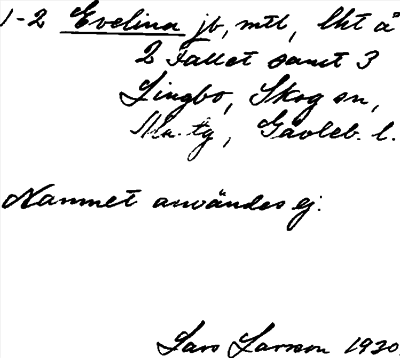 1-2 Evelina jb, mtl, lht å
2 Fallet samt 3
Lingbo, Skog sn,
Ala tg, Gävleb. l.
Namnet användes ej.
Lars Larsson 1930